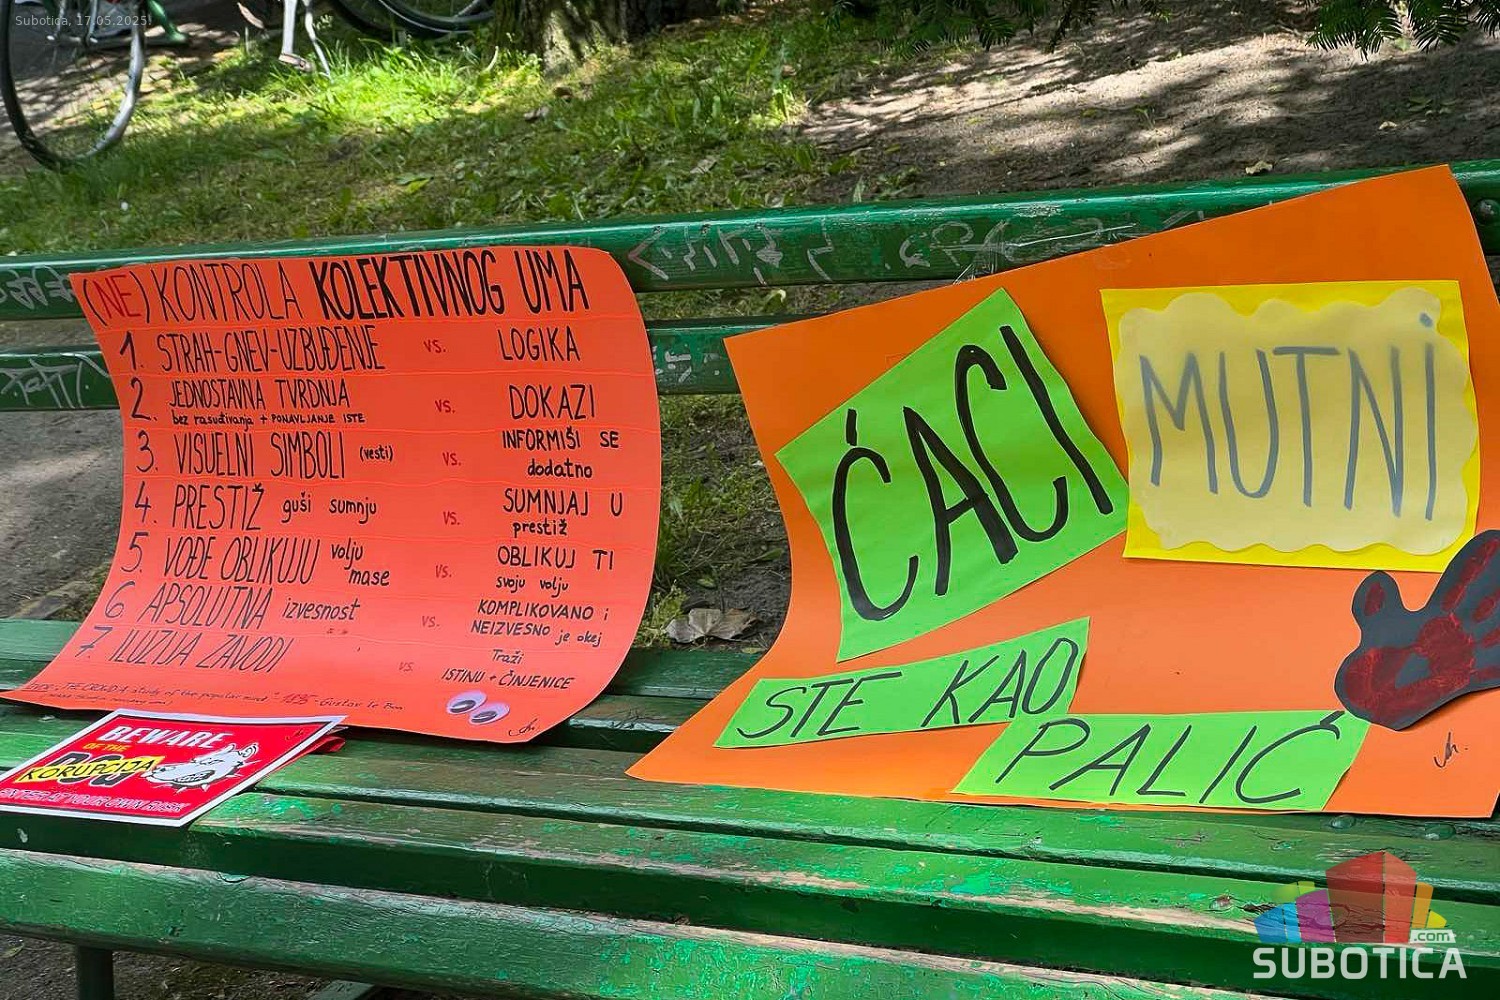 Subotica, 17.05.2025.
(NE) KONTROLA KOLEKTIVNOG UMA
1. STRAH-GNEV-UZBUĐENJE vs. LOGIKA
2. JEDNOSTAVNA TVRDNJA vs. DOKAZI
bez rasuđivanja + PONAVLJANJE ISTE
3. VISUELNI SIMBOLI (vesti) vs. INFORMIŠI SE
dodatno
4. PRESTIŽ guši sumnju vs. SUMNJAJ U
prestiž
5. VOĐE OBLIKUJU volju mase vs. OBLIKUJ TI
svoju volju
6. APSOLUTNA izvesnost vs. KOMPLIKOVANO i
NEIZVESNO je okej
7. ILUZIJA ZAVODI vs. Traži
ISTINU + ČINJENICE
"THE CROWD: A study of the popular mind" - 1895 - Gustav le Bon
BEWARE
OF THE
DOG
KORUPCIJA
ENTER AT YOUR OWN RISK
ĆACI
MUTNI
STE KAO
PALIĆ
.com
SUBOTICA